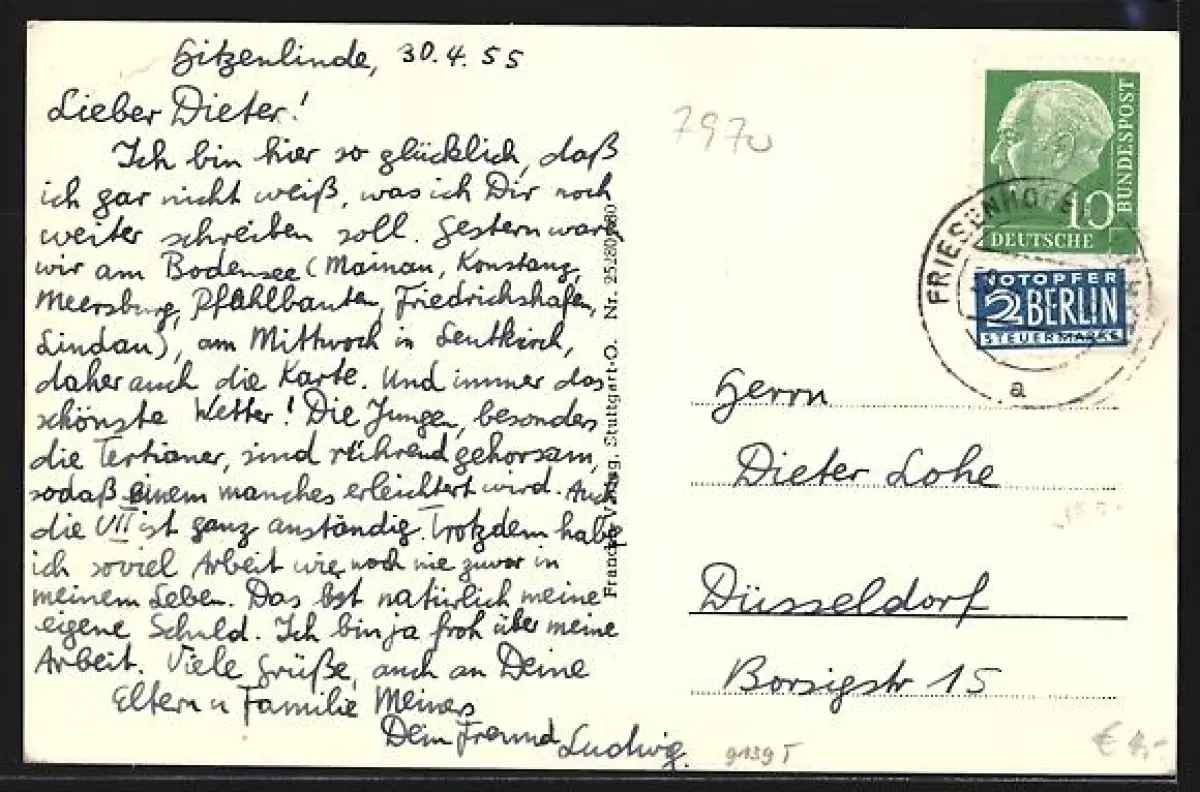 Gitzenlinde, 30.4.55
Lieber Dieter!
Ich bin hier so glücklich, daß
ich gar nicht weiß, was ich Dir noch
weiter schreiben soll. Gestern waren
wir am Bodensee (Mainau, Konstanz,
Meersburg, Pfahlbauten, Friedrichshafen,
Lindau), am Mittwoch in Leutkirch,
daher auch die Karte. Und immer das
schönste Wetter! Die Jungen, besonders
die Tertianer, sind rührend gehorsam,
sodaß einem manches erleichtert wird. Auch
die VII ist ganz anständig. Trotzdem habe
ich soviel Arbeit wie noch nie zuvor in
meinem Leben. Das ist natürlich meine
eigene Schuld. Ich bin ja froh über meine
Arbeit. Viele Grüße, auch an Deine
Eltern u Familie Meiners
Dein Freund Ludwig.
Franckh Verlag, Stuttgart-O. Nr.
7970
BUNDESPOST
10
DEUTSCHE
FRIESENHOFEN
a
NOTOPFER
2 BERLIN
STEUERMARKE
Herrn
Dieter Lohe
Düsseldorf
Borsigstr 15
9139 T
€ 4,-